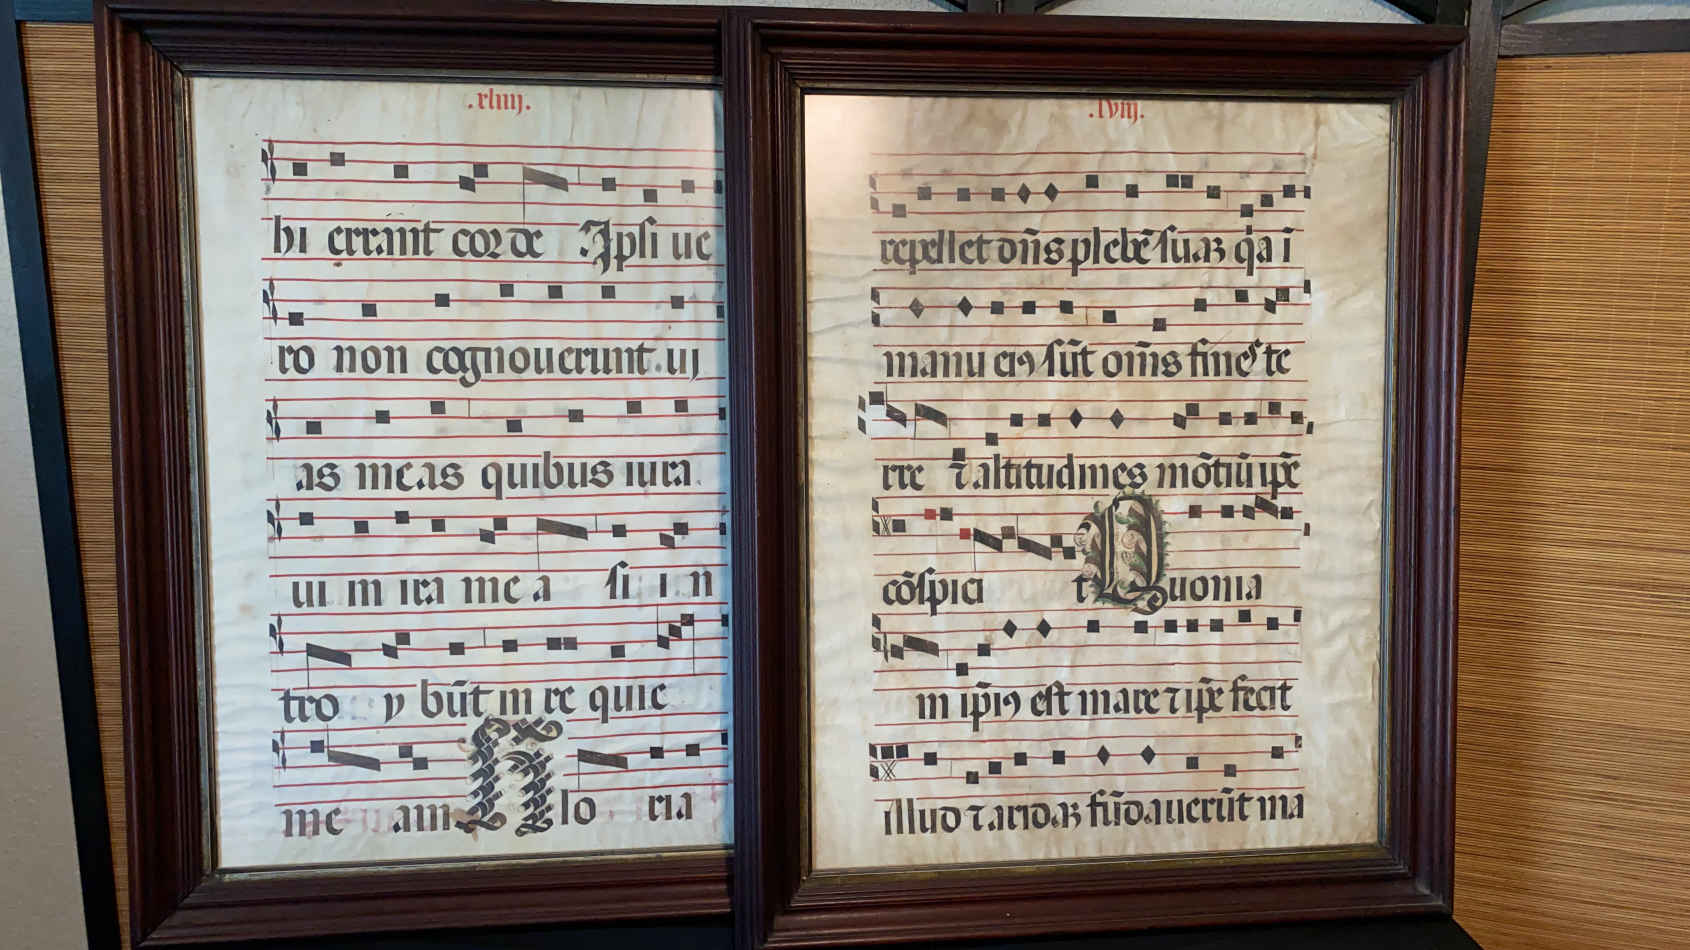 .xliiij.
hi errant corde Ipsi ue
ro non cognouerunt uij
as meas quibus iura
ui in ira me a si in
tro y būt in re quie
me am Glo ria
.lviij.
repellet dn̄s plebē suaꝫ q̇a ī
manu eiꝯ sūt om̄s fines te
rre ⁊ altitudines mōtiū ip̄e
cōspici t Quonia
m ip̄iꝯ est mare ⁊ ip̄e fecit
illud ⁊ aridaꝫ fūdauerūt ma